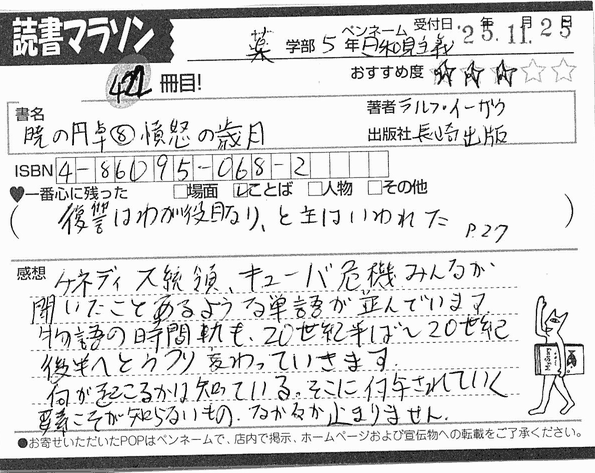 読書マラソン
薬 学部 5年 ペンネーム 日和見主義 受付日 '25年.11月.25日
おすすめ度 ★★★☆☆
422 冊目!
書名 著者 ラルフ・イーザウ
暁の円卓⑧ 憤怒の歳月 出版社 長崎出版
ISBN 4-86095-068-2
♥一番心に残った □場面 ☑ことば □人物 □その他
(復讐はわが役目なり、と主はいわれた P.27)
感想 ケネディ大統領、キューバ危機みんなが
聞いたことあるような単語が並んでいます
物語の時間軌も、20世紀半ば〜20世紀
後半へとうつり変わっていきます.
何が起こるかは知っている。そこに付与されていく
要素こそが知らないもの. なかなか止まりません.
●お寄せいただいたPOPはペンネームで、店内で掲示、ホームページおよび宣伝物への転載をご了承ください。